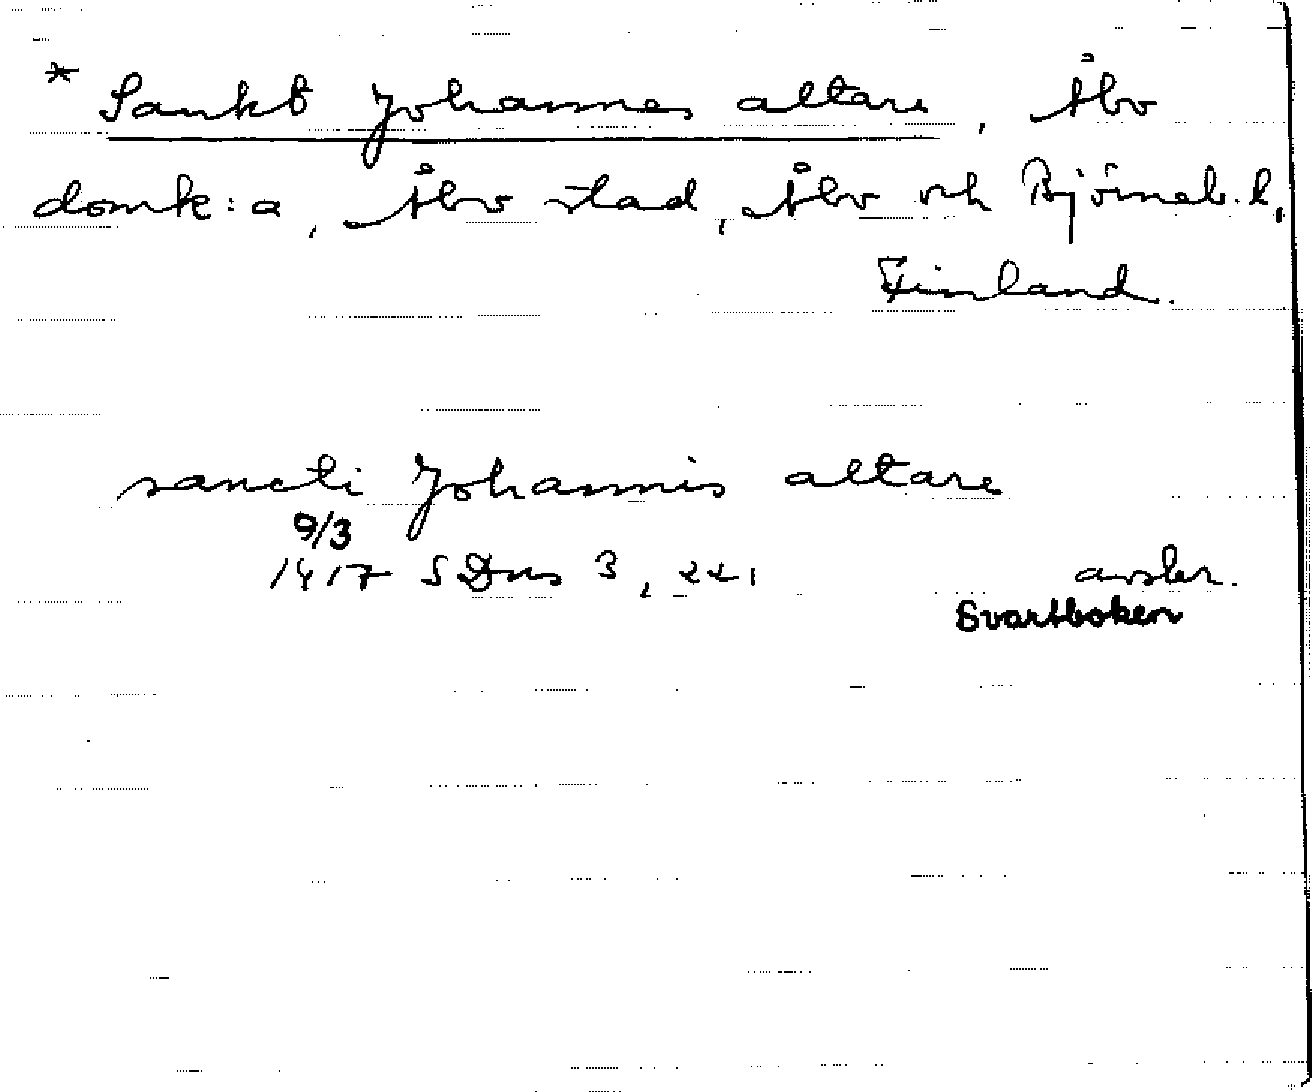 * Sankt Johannes altare, Åbo
domk:a, Åbo stad, Åbo och Björneb. l,
Finland.
sancti Johannis altare
9/3
1417 SDns 3, 221 avskr.
Svartboken